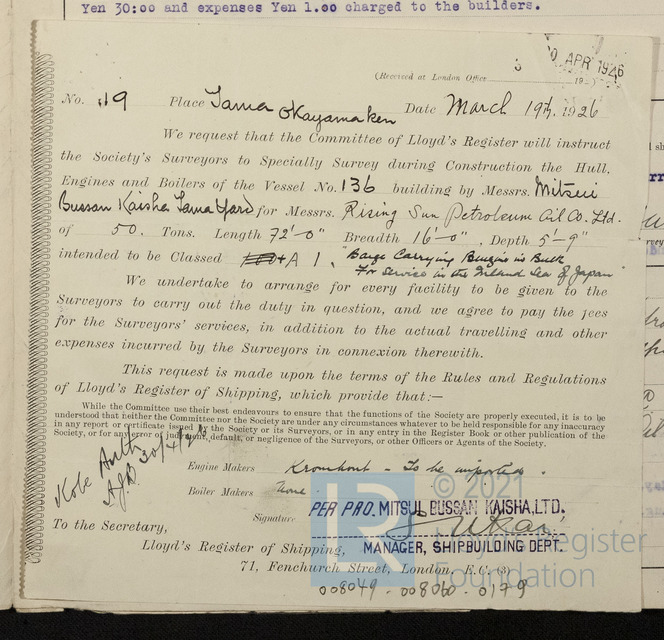 Yen 30:00 and expenses Yen 1.00 charged to the builders.
0 APR 1926
(Received at London Office 19
No. 119 Place Tama Okayamaken Date March 19th, 1926
We request that the Committee of Lloyd's Register will instruct
the Society's Surveyors to Specially Survey during Construction the Hull,
Engines and Boilers of the Vessel No. 136 building by Messrs. Mitsui
Bussan Kaisha Tama Yard for Messrs. Rising Sun Petroleum Oil Co. Ltd.
of 50. Tons. Length 72'-0" Breadth 16'-0", Depth 5'-9"
intended to be Classed A 1, "Barge Carrying Benzin in Bulk
For Service in the Inland Sea of Japan"
We undertake to arrange for every facility to be given to the
Surveyors to carry out the duty in question, and we agree to pay the fees
for the Surveyors' services, in addition to the actual travelling and other
expenses incurred by the Surveyors in connexion therewith.
This request is made upon the terms of the Rules and Regulations
of Lloyd's Register of Shipping, which provide that:—
While the Committee use their best endeavours to ensure that the functions of the Society are properly executed, it is to be
understood that neither the Committee nor the Society are under any circumstances whatever to be held responsible for any inaccuracy
in any report or certificate issued by the Society or its Surveyors, or in any entry in the Register Book or other publication of the
Society, or for any error of judgment, default, or negligence of the Surveyors, or other Officers or Agents of the Society.
Kobe
Engine Makers Kromhout - To be imported.
Boiler Makers None.
Signature PER PRO. MITSUI BUSSAN KAISHA, LTD.
MANAGER, SHIPBUILDING DEPT.
To the Secretary,
Lloyd's Register of Shipping,
71, Fenchurch Street, London, E.C. (3)
008049-008060-0179
LR
© 2021
Lloyd's Register
Foundation